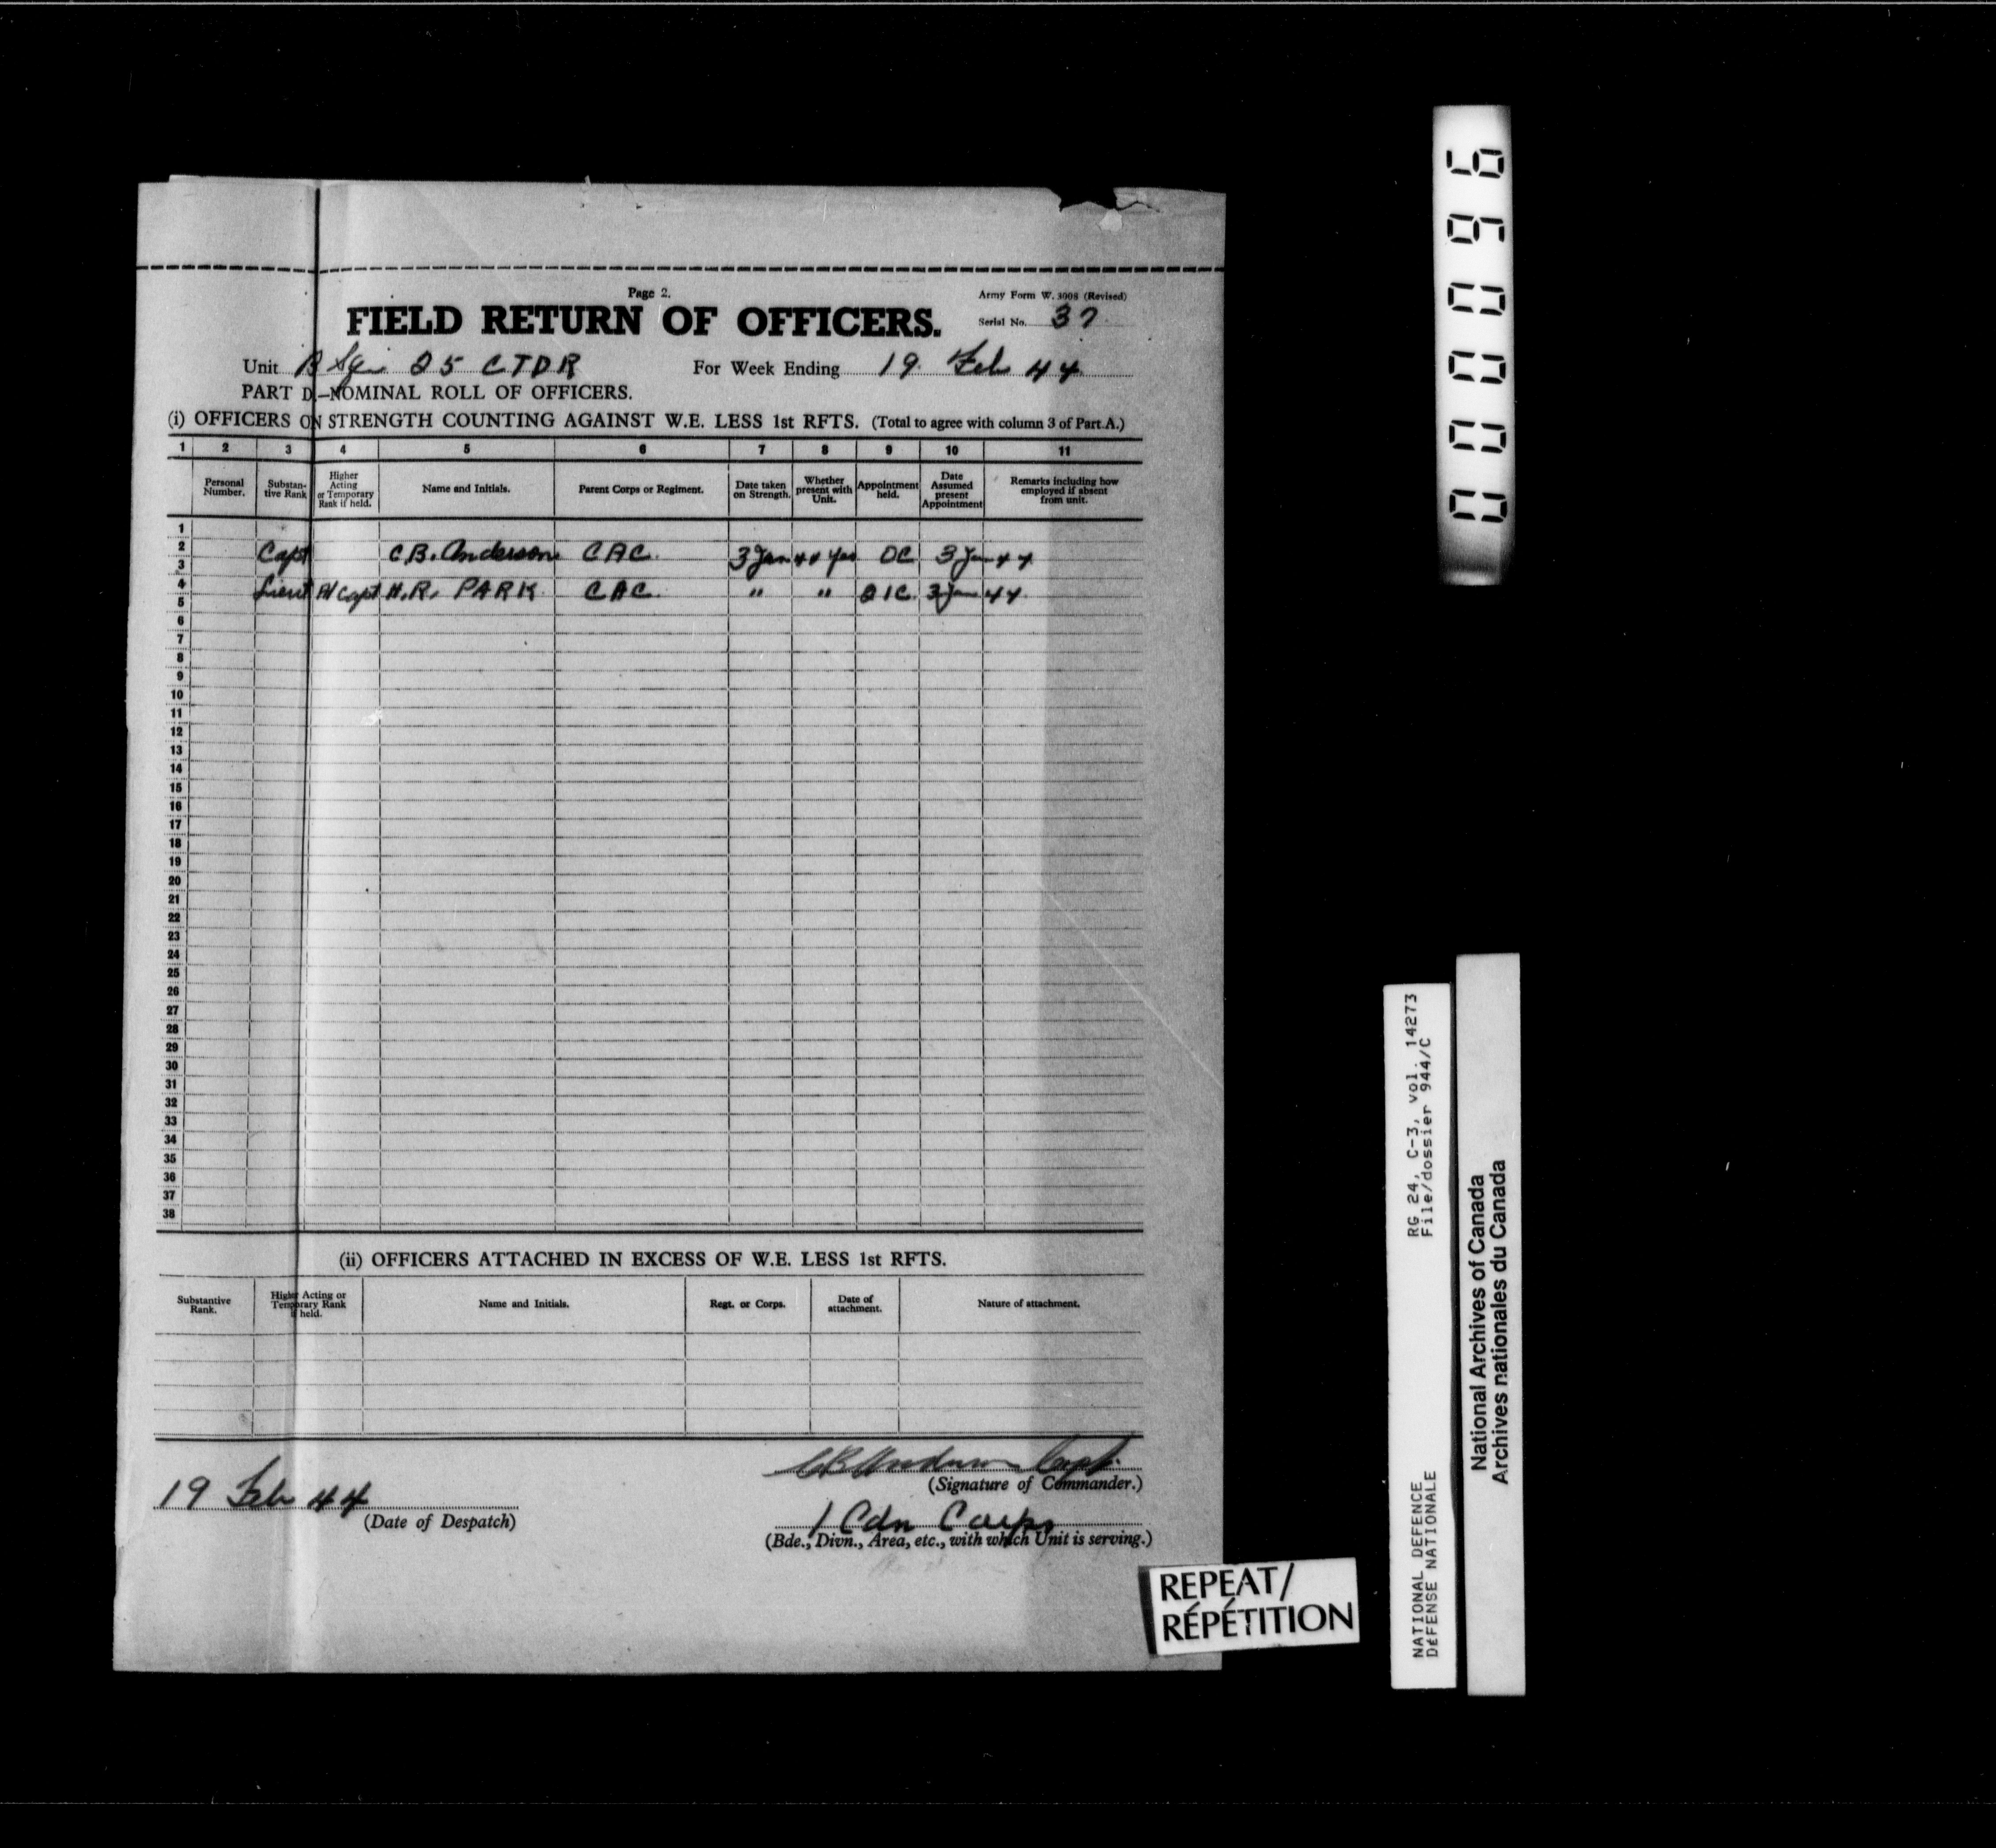 Page 2.
Army Form W. 3008 (Revised)
FIELD RETURN OF OFFICERS.
Serial No. 37
Unit B Sqn 25 CTDR For Week Ending 19 Feb 44
PART D.—NOMINAL ROLL OF OFFICERS.
(i) OFFICERS ON STRENGTH COUNTING AGAINST W.E. LESS 1st RFTS. (Total to agree with column 3 of Part A.)
1 2 3 4 5 6 7 8 9 10 11
Personal Number. Substantive Rank Higher Acting or Temporary Rank if held. Name and Initials. Parent Corps or Regiment. Date taken on Strength. Whether present with Unit. Appointment held. Date Assumed present Appointment Remarks including how employed if absent from unit.
1
2 Capt C.B. Anderson CAC. 3 Jan 44 Yes OC 3 Jan 44
3
4 Lieut A/Capt H.R. PARK CAC " " 2IC 3 Jan 44
5
6
7
8
9
10
11
12
13
14
15
16
17
18
19
20
21
22
23
24
25
26
27
28
29
30
31
32
33
34
35
36
37
38
(ii) OFFICERS ATTACHED IN EXCESS OF W.E. LESS 1st RFTS.
Substantive Rank. Higher Acting or Temporary Rank if held. Name and Initials. Regt. or Corps. Date of attachment. Nature of attachment.
CB Anderson Capt.
(Signature of Commander.)
19 Feb 44
(Date of Despatch)
1 Cdn Corps
(Bde., Divn., Area, etc., with which Unit is serving.)
REPEAT/
RÉPÉTITION
000096
RG 24, C-3, vol. 14273
File/dossier 944/C
NATIONAL DEFENCE
DÉFENSE NATIONALE
National Archives of Canada
Archives nationales du Canada